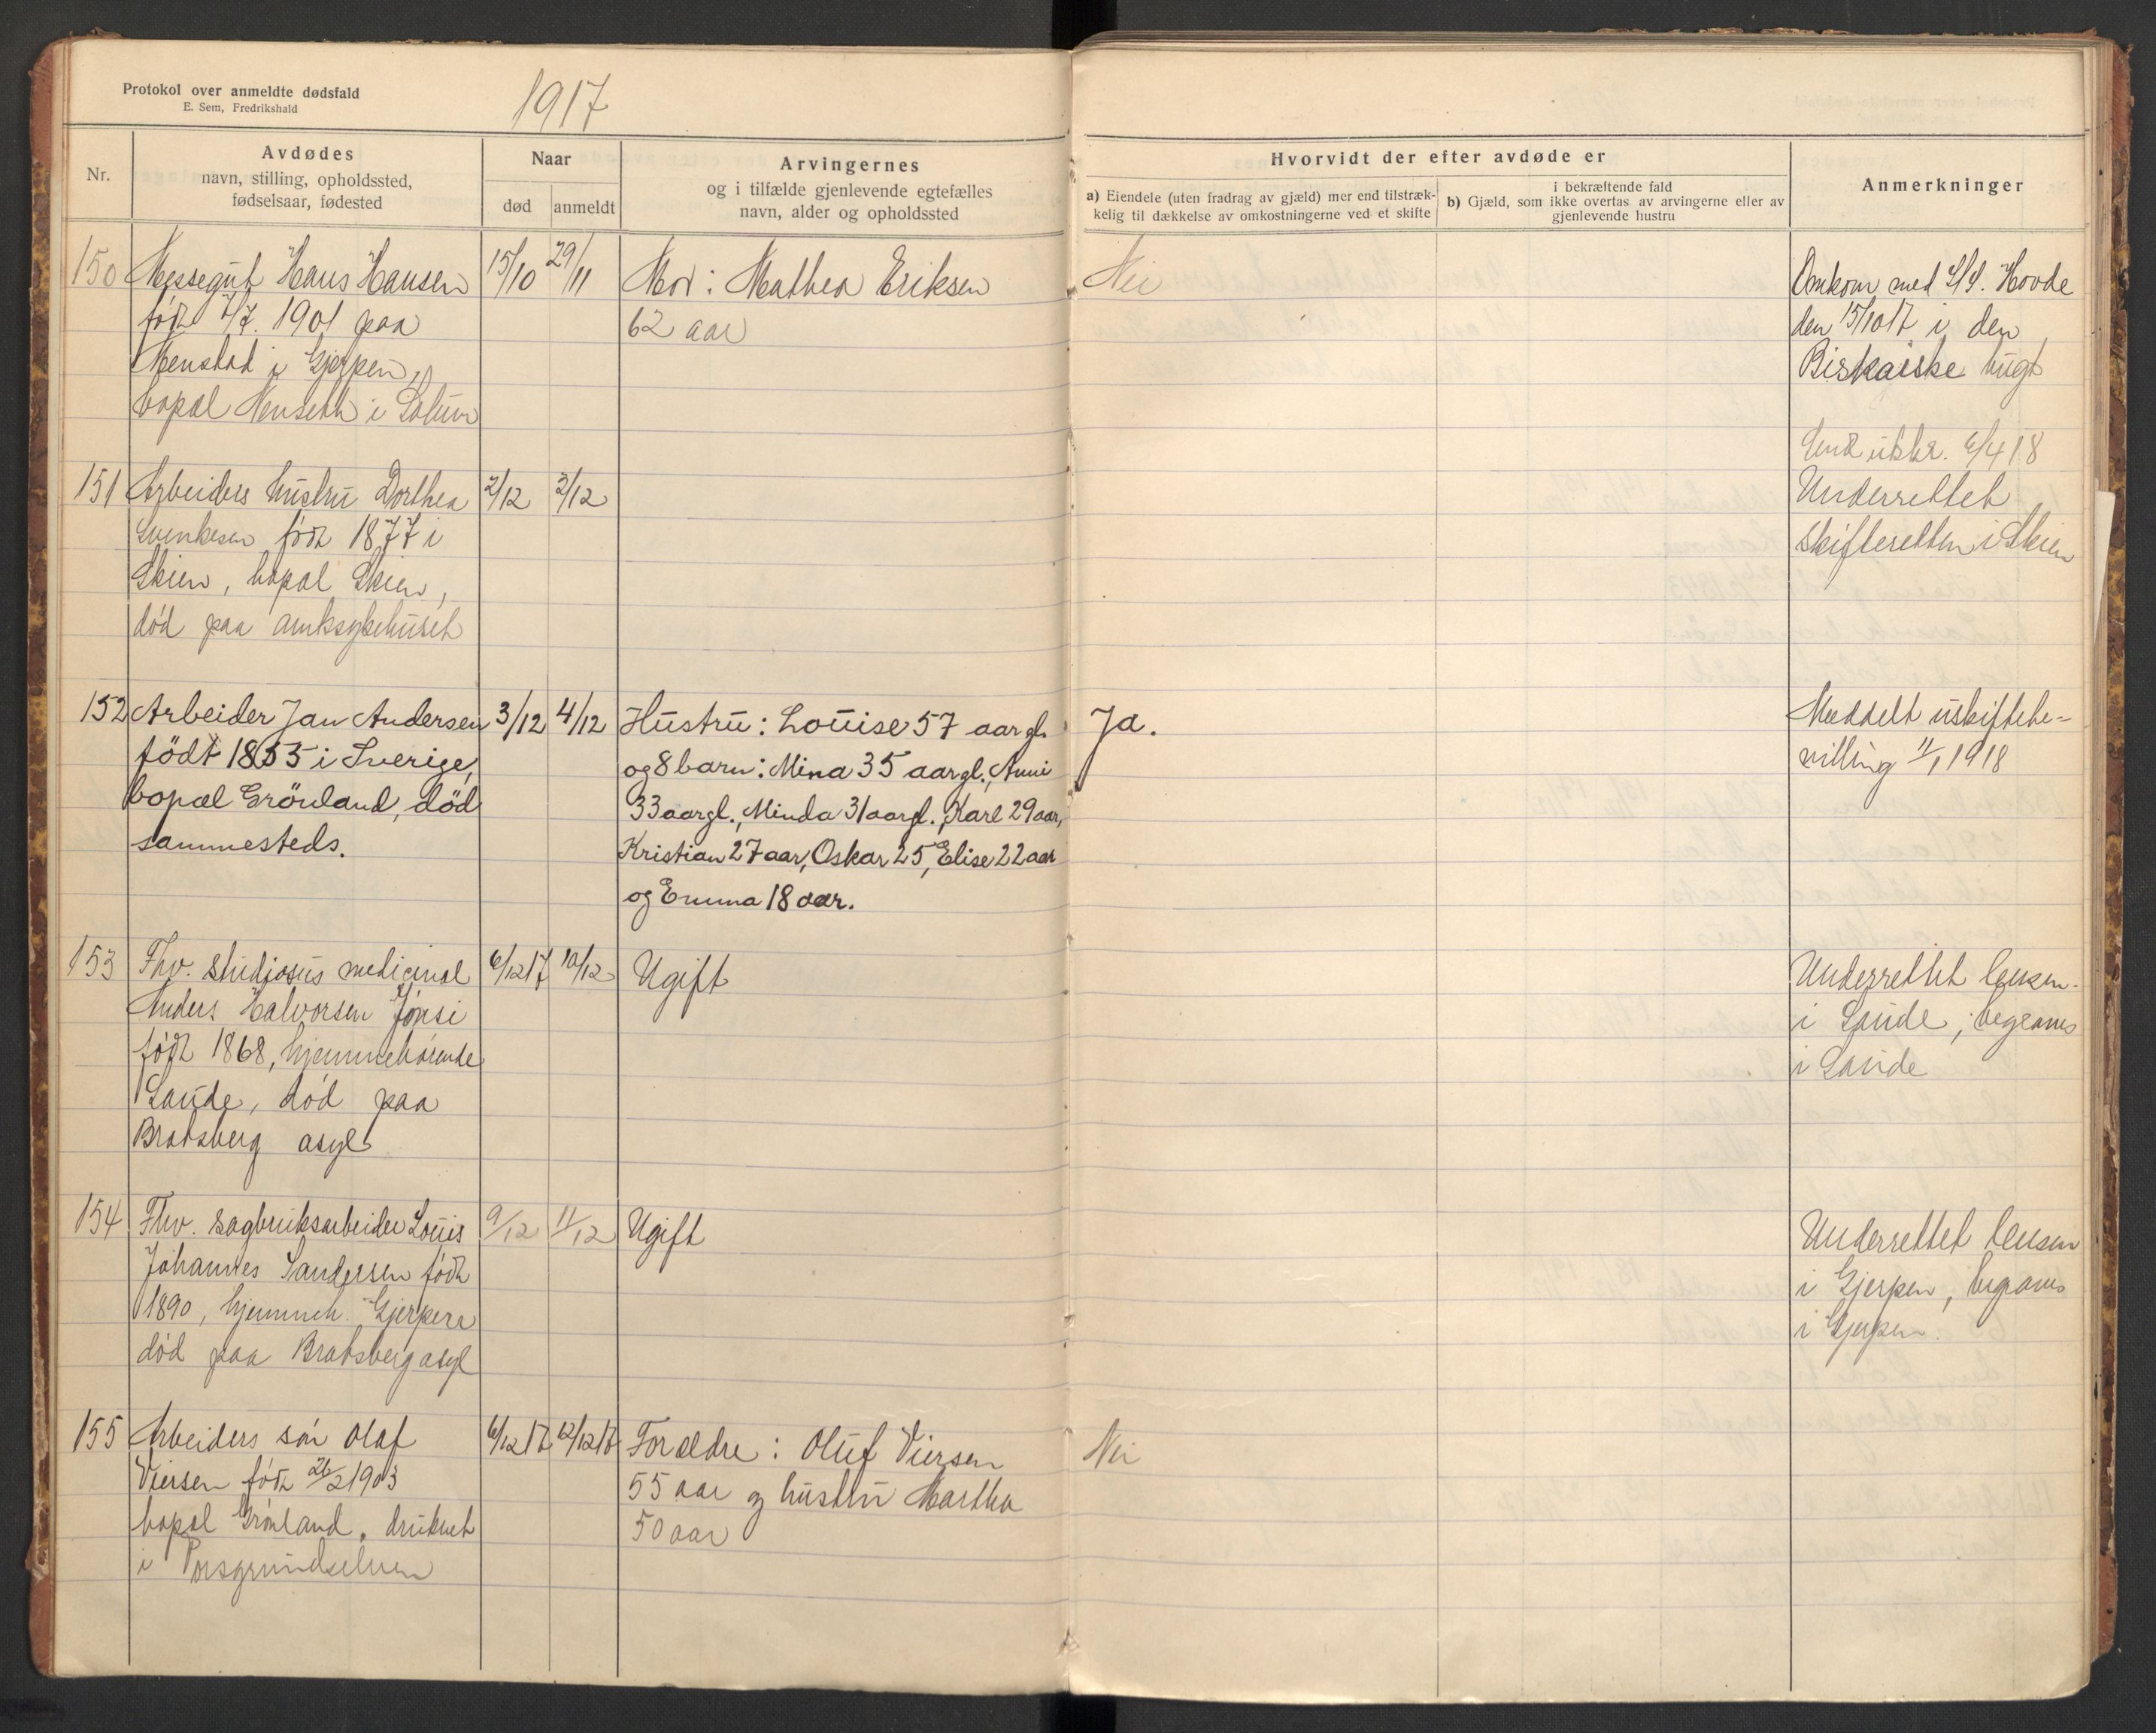 Protokol over anmeldte dødsfald
E. Sem, Fredrikshald
1917
Nr.
Avdødes
navn, stilling, opholdssted,
fødselsaar, fødested
Naar
død
anmeldt
Arvingernes
og i tilfælde gjenlevende egtefælles
navn, alder og opholdssted
Hvorvidt der efter avdøde er
a) Eiendele (uten fradrag av gjæld) mer end tilstræk-
kelig til dækkelse av omkostningerne ved et skifte
i bekræftende fald
b) Gjæld, som ikke overtas av arvingerne eller av
gjenlevende hustru
Anmerkninger
150
Messegut Hans Hansen
født 7/7. 1901 paa
Menstad i Gjerpen,
bopæl Menseth i Solum
15/10
29/11
Mor: Mathea Eriksen
62 aar
Nei
Omkom med S/S. Hovde
den 15/10 17 i den
Biskaiske bugt
Send utskr. 6/4 18
151
Arbeiders hustru Dorthea
Svenksen født 1877 i
Skien, bopæl Skien,
død paa amtssykehuset
2/12
3/12
Underrettet
skifteretten i Skien
152
Arbeider Jan Andersen
født 1855 i Sverige,
bopæl Grönland, död
sammesteds.
3/12
4/12
Hustru: Louise 57 aar gl.
og 8 barn: Mina 35 aar gl., Anni
33 aar gl., Minda 31 aar gl., Karl 29 aar,
Kristian 27 aar, Oskar 25, Elise 22 aar
og Emma 18 aar.
Ja.
Meddelt uskiftebe-
villing 11/1 1918
153
Fhv. studiosus medicinal
Anders Halvorsen Jönsi
født 1868, hjemmehørende
Saude, død paa
Bratsberg asyl
6/12 17
10/12
Ugift
Underrettet lensm.
i Saude, begraves
i Saude
154
Fhv. sagbruksarbeider Louis
Johannes Sandersen født
1890, hjemmeh. Gjerpen
død paa Bratsberg asyl
9/12
11/12
Ugift
Underrettet lensm
i Gjerpen, begraves
i Gjerpen.
155
Arbeiders søn Olaf
Viersen født 26/2 1903
bopæl Grønland, druknet
i Porsgrundselven
6/12 17
12/12 17
Forældre: Oluf Viersen
55 aar og hustru Martha
50 aar
Nei